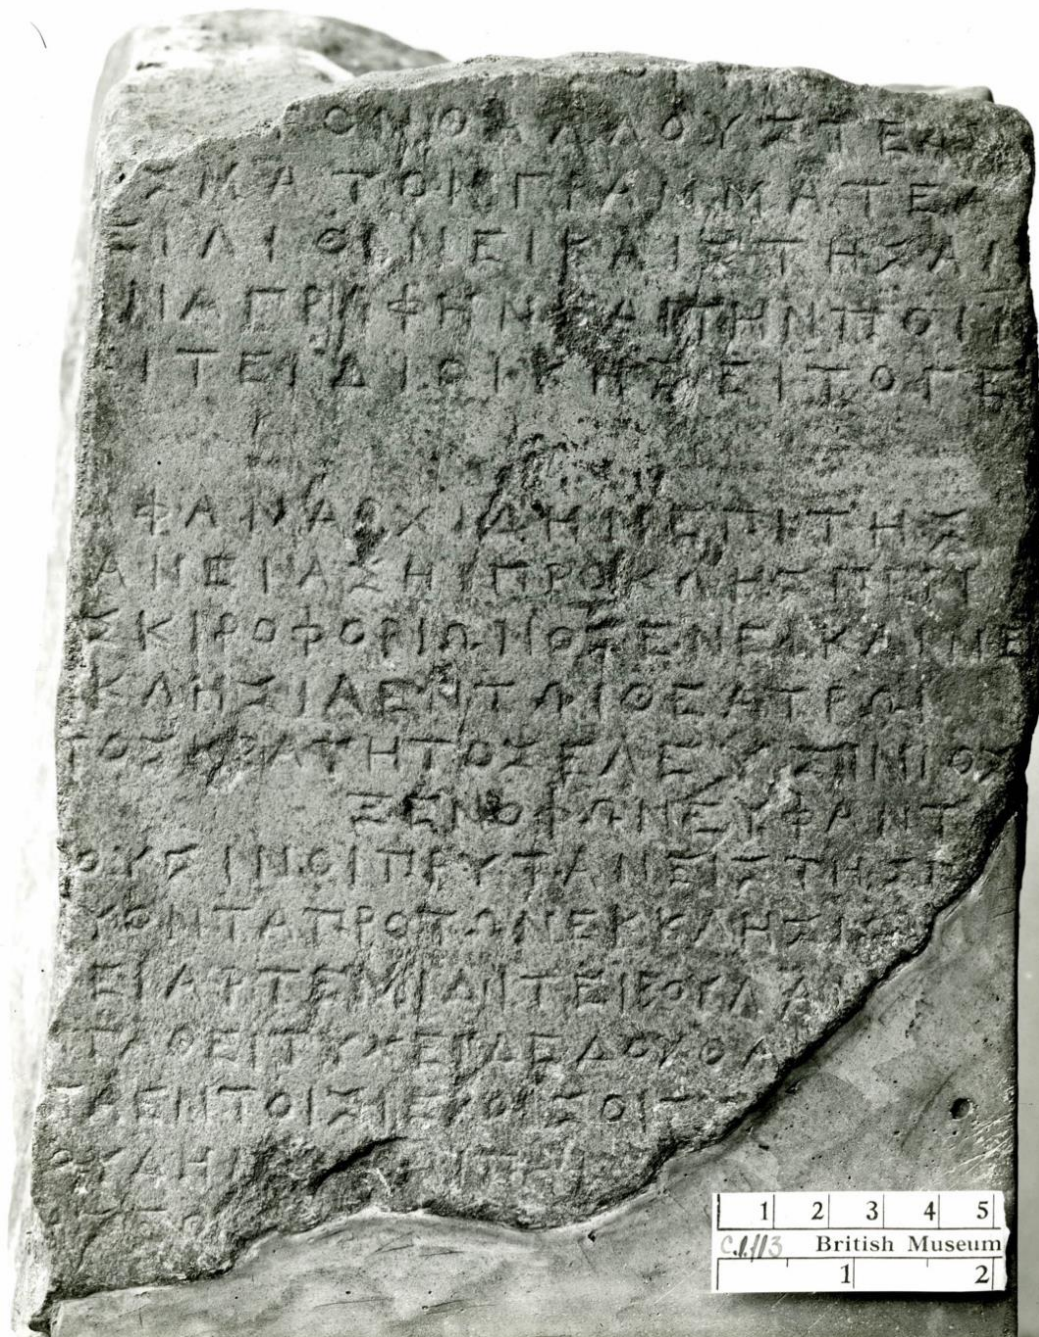 ΟΝΘΑΛΛΟΥΣΤΕΦ
ΣΜΑΤΟΝΓΡΑΜΜΑΤΕΑ
ΕΙΛΙΘΙΝΕΙΚΑΙΣΤΗΣΑΙ
ΝΑΓΡΑΦΗΝΚΑΙΤΗΝΠΟΙΗ
ΙΤΕΙΔΙΩΙΚΗΣΕΙΤΟΓΕ
ΦΑΝΑΡΧΙΔΗΝΕΠΙΤΗΣ
ΑΙΝΕΙΑΣΗΙΠΡΟΚΛΗΣΠΕΡΙ
ΣΚΙΡΟΦΟΡΙΩΝΟΣΕΝΕΙΚΑΙΝΕ
ΚΛΗΣΙΑΕΝΤΩΙΘΕΑΤΡΩΙ
ΤΟΣΚΡΑΤΗΤΟΣΕΛΕΥΣΙΝΙΟΣ
ΞΕΝΟΦΩΝΕΥΦΑΝΤ
ΟΥΣΙΝΟΙΠΡΥΤΑΝΕΙΣΤΗΣΕ
ΚΟΝΤΑΠΡΟΤΩΝΕΚΚΛΗΣΙΩ
ΕΙΑΡΤΕΜΙΔΙΤΕΙΒΟΥΛΑΙ
ΓΑΘΕΙΤΥΧΕΙΔΕΔΟΧΘΑ
ΑΕΝΤΟΙΣΙΕΡΟΙΣΟΙΣ
1 2 3 4 5
C.1.113 British Museum
1 2